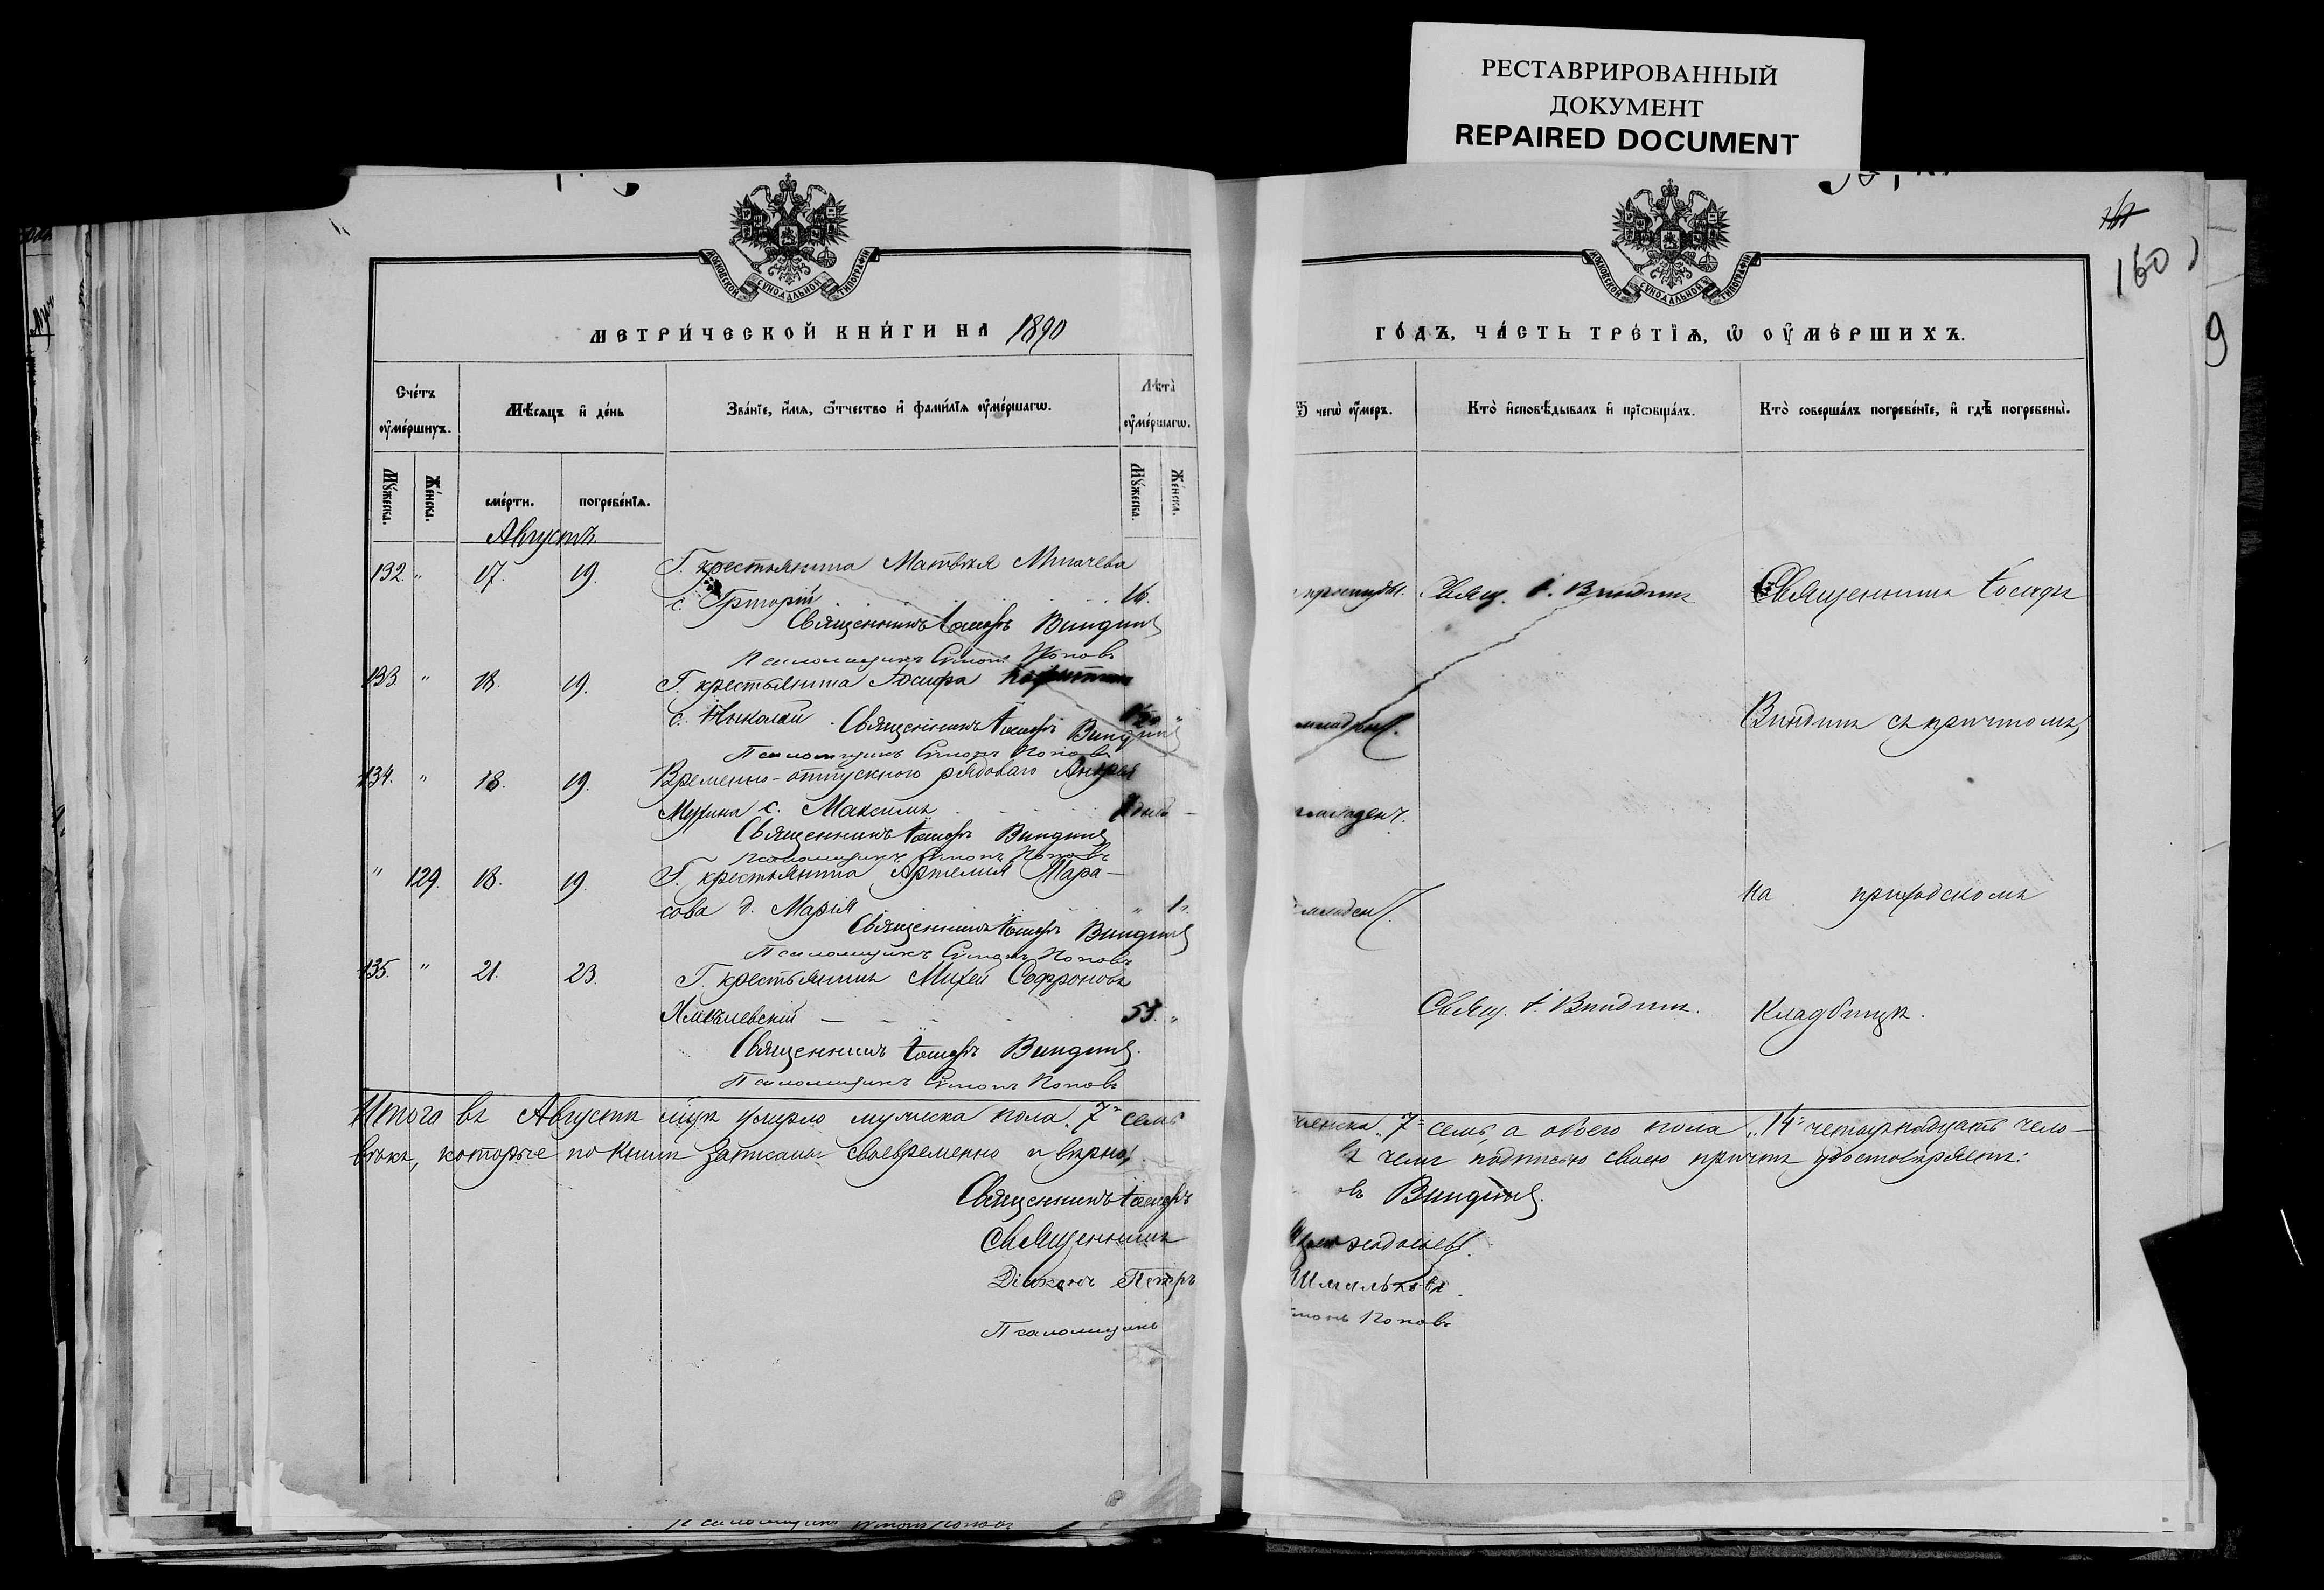 РЕСТАВРИРОВАННЫЙ
ДОКУМЕНТ
REPAIRED DOCUMENT
160
9
МОСКОВСКОЙ СѴНОДАЛЬНОЙ ТИПОГРАФІИ
МОСКОВСКОЙ СѴНОДАЛЬНОЙ ТИПОГРАФІИ
МЕТРИ́ЧЕСКОЙ КНИ́ГИ НА 1890
ГО́ДЪ, ЧА́СТЬ ТРЕ́ТІѦ, Ѡ ОУ҆МЕ́РШИХЪ.
Сче́тъ оу҆ме́ршихъ.
Мѣ́сяцъ и҆ де́нь
Зва́нїе, и҆́мѧ, ѻ҆́тчество и҆ фами́лїѧ оу҆ме́ршагѡ.
Лѣта̀ оу҆ме́ршагѡ.
Ѿ чегѡ̀ оу҆́меръ.
Кто̀ и҆сповѣ́дывалъ и҆ прїѡбща́лъ.
Кто̀ соверша́лъ погребе́нїе, и҆ гдѣ̀ погребены̀.
Мꙋ́жеска.
Же́нска.
сме́рти.
погребе́нїѧ.
Мꙋ́жеска.
Же́нска.
Августъ
132. " 17. 19. Г. крестьянина Матвѣя
с. Григорій
Священникъ Іосифъ Виндинъ
Псаломщикъ Симонъ Поповъ
простуды. Свящ. І. Виндинъ. Священникъ Іосифъ
133. " 18. 19. Г. крестьянина Іосифа
с. Николай. Священникъ Іосифъ Виндинъ
Псаломщикъ Симонъ Поповъ
Виндинъ съ причтомъ
134. " 18. 19. Временно-отпускного рядоваго Андрея
с. Максимъ
Священникъ Іосифъ Виндинъ
Псаломщикъ Симонъ Поповъ
младенч.
" 129. 18. 19. Г. крестьянина Артемія Мара-
сова д. Марія " 1 г.
Священникъ Іосифъ Виндинъ
Псаломщикъ Симонъ Поповъ
младен.
на приходскомъ
135. " 21. 23. Г. крестьянинъ Михей Софроновъ
"
Священникъ Іосифъ Виндинъ.
Псаломщикъ Симонъ Поповъ
Свящ. І. Виндинъ.
Кладбищѣ.
Итого въ Августѣ мѣсяцѣ умерло мужеска пола „7" семь
женска „7" семь, а обоего пола „14" четырнадцать чело-
вѣкъ, которые по книгѣ записаны своевременно и вѣрно,
въ чемъ подписью своею причтъ удостовѣряетъ:
Священникъ Іосифъ
Виндинъ.
Священникъ
Діаконъ Петръ
Шмальковъ.
Псаломщикъ
Симонъ Поповъ